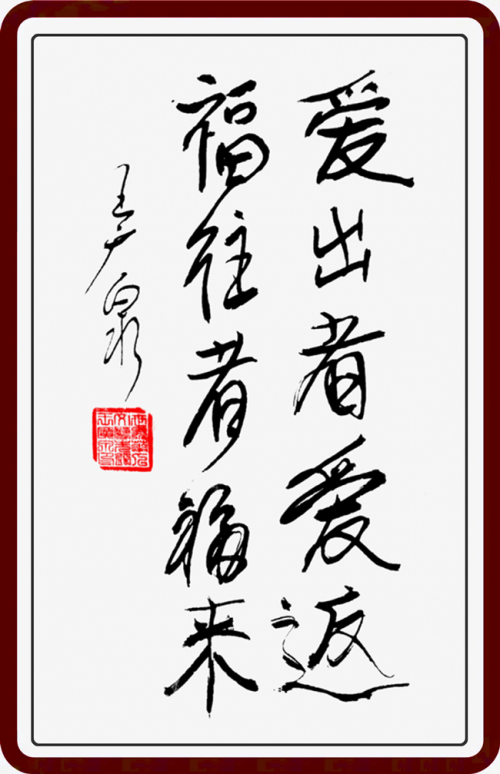 爱出者爱返
福往者福来